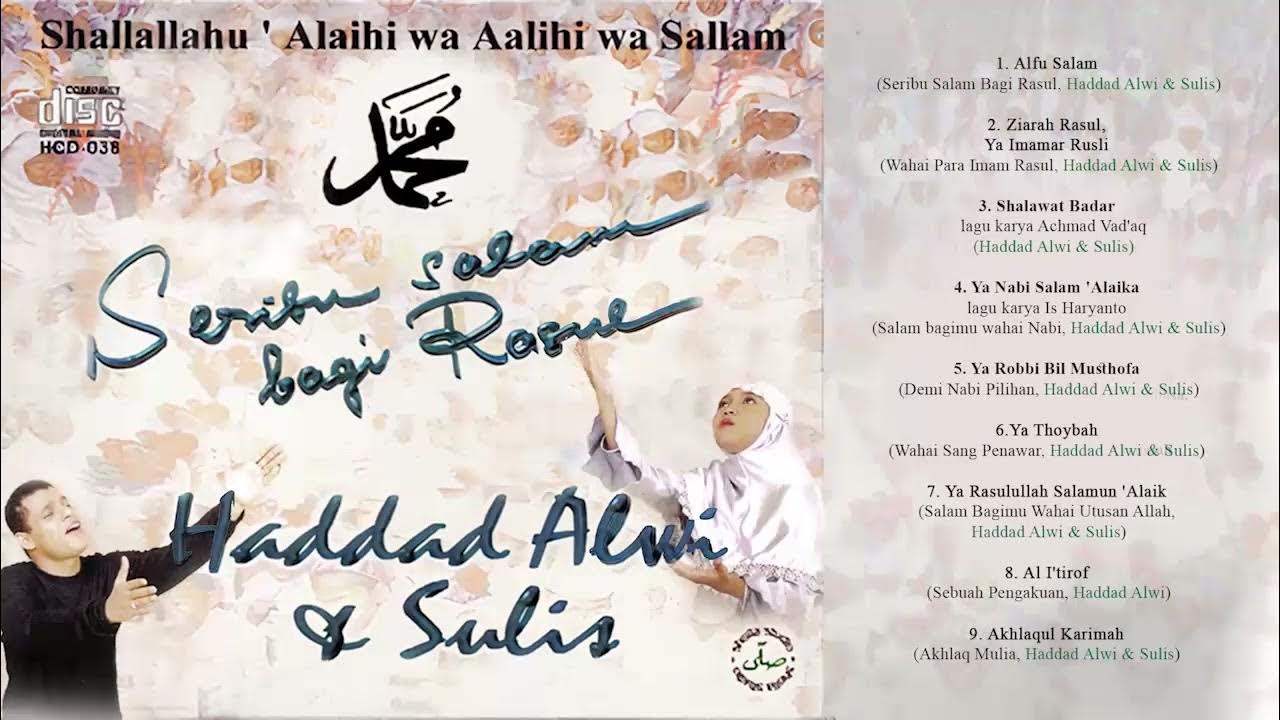 Shallallahu ' Alaihi wa Aalihi wa Sallam
COMPACT
disc
DIGITAL AUDIO
HCD-038
محمد
Seribu salam
bagi Rasul
Haddad Alwi
& Sulis
صلى
1. Alfu Salam
(Seribu Salam Bagi Rasul, Haddad Alwi & Sulis)
2. Ziarah Rasul,
Ya Imamar Rusli
(Wahai Para Imam Rasul, Haddad Alwi & Sulis)
3. Shalawat Badar
lagu karya Achmad Vad'aq
(Haddad Alwi & Sulis)
4. Ya Nabi Salam 'Alaika
lagu karya Is Haryanto
(Salam bagimu wahai Nabi, Haddad Alwi & Sulis)
5. Ya Robbi Bil Musthofa
(Demi Nabi Pilihan, Haddad Alwi & Sulis)
6.Ya Thoybah
(Wahai Sang Penawar, Haddad Alwi & Sulis)
7. Ya Rasulullah Salamun 'Alaik
(Salam Bagimu Wahai Utusan Allah,
Haddad Alwi & Sulis)
8. Al I'tirof
(Sebuah Pengakuan, Haddad Alwi)
9. Akhlaqul Karimah
(Akhlaq Mulia, Haddad Alwi & Sulis)